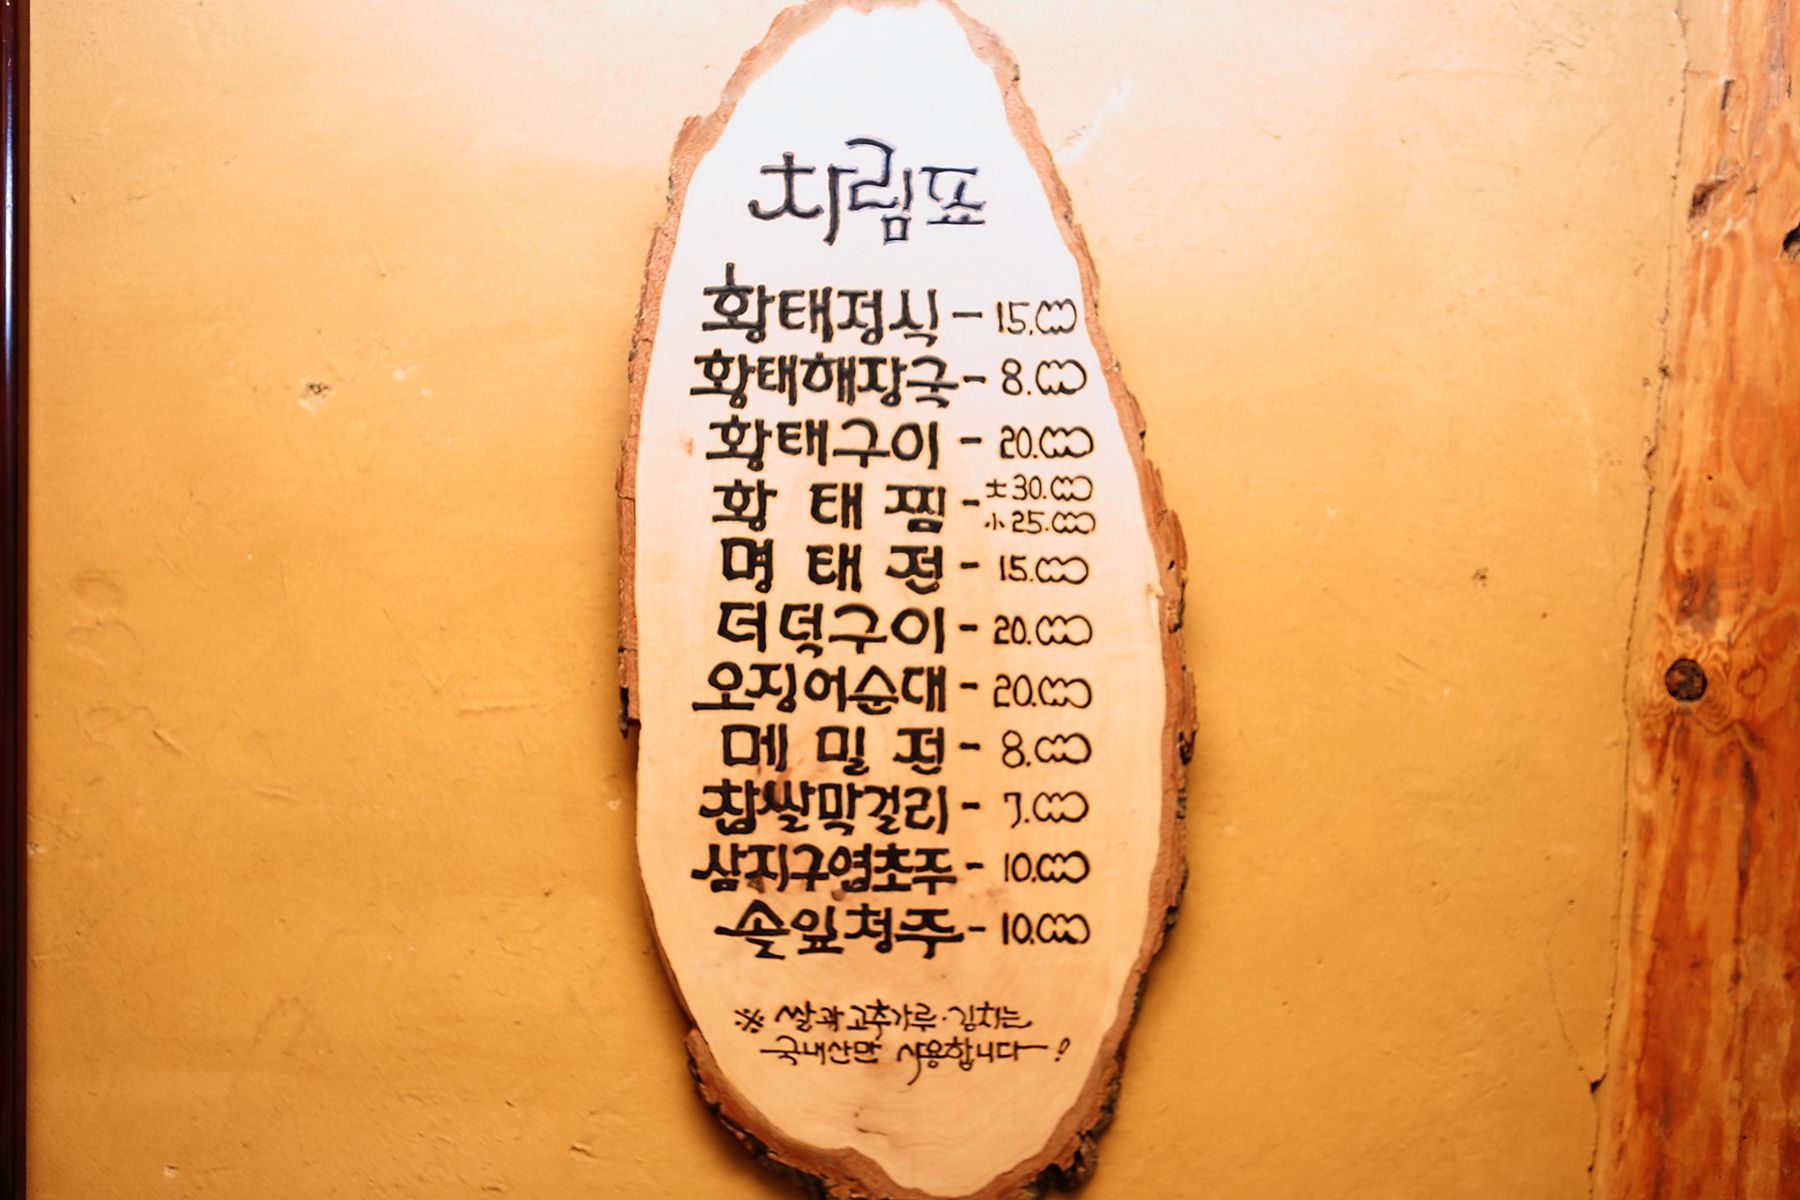 차림표
황태정식 - 15.000
황태해장국 - 8.000
황태구이 - 20.000
황태찜 - 大 30.000
小 25.000
명태전 - 15.000
더덕구이 - 20.000
오징어순대 - 20.000
메밀전 - 8.000
찹쌀막걸리 - 7.000
삼지구엽초주 - 10.000
솔잎청주 - 10.000
※ 쌀과 고추가루·김치는
국내산만 사용합니다!